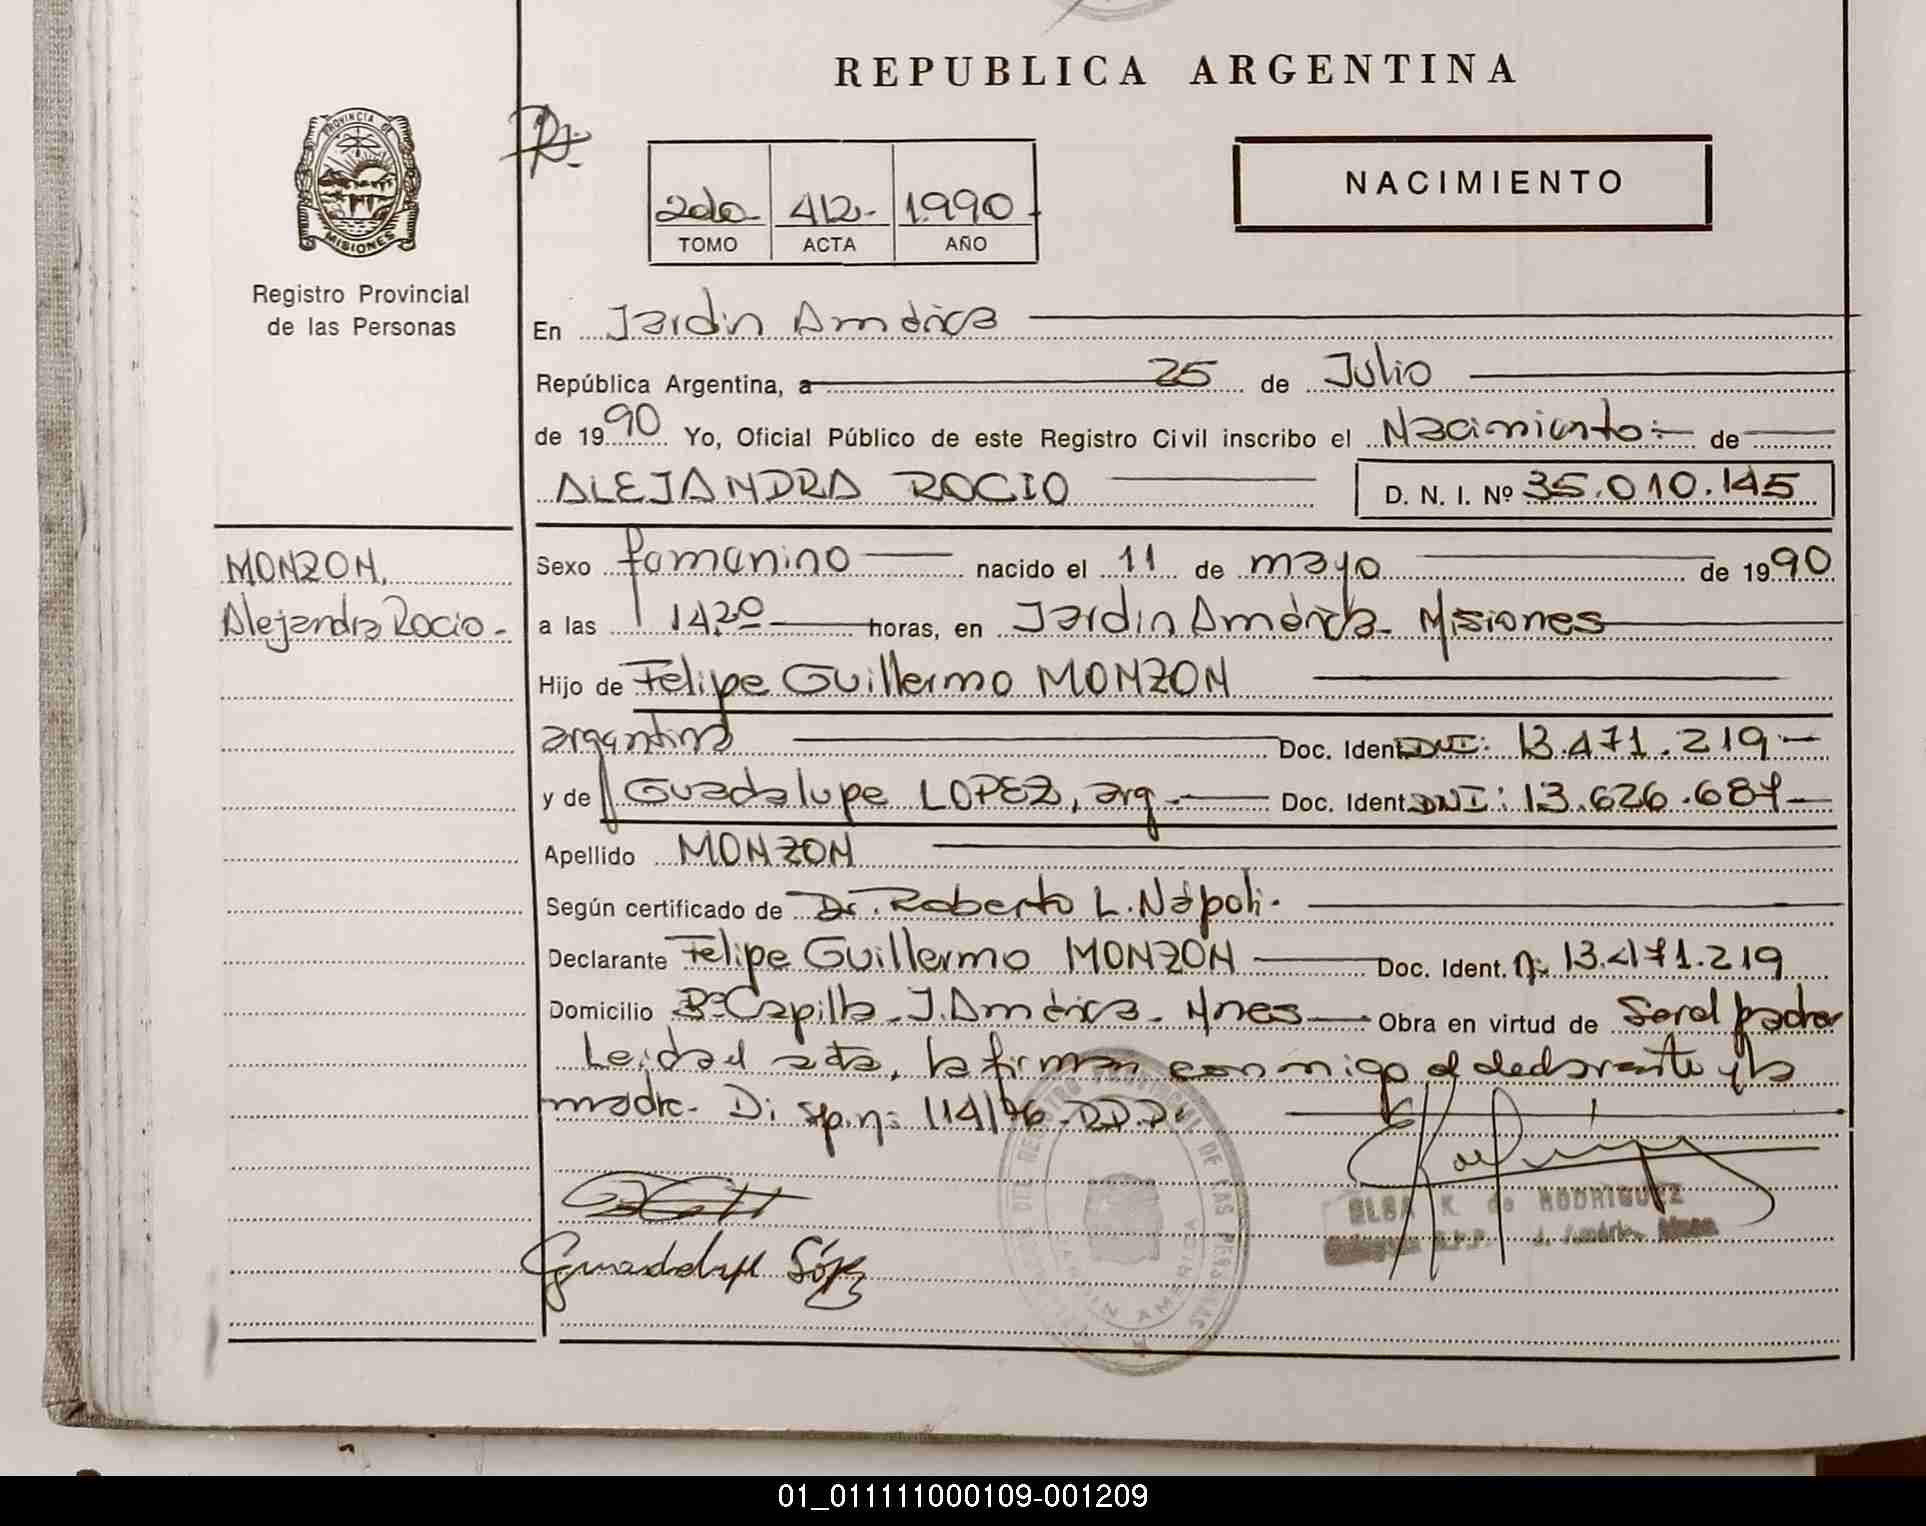 REPUBLICA ARGENTINA
PROVINCIA DE
MISIONES
Registro Provincial
de las Personas
2do 412- 1.990
TOMO ACTA AÑO
NACIMIENTO
En Jardín América
República Argentina, a 25 de Julio
de 1990 Yo, Oficial Público de este Registro Civil inscribo el Nacimiento:- de
ALEJANDRA ROCIO D. N. I. Nº 35.010.145
MONZON,
Alejandra Rocio -
Sexo femenino nacido el 11 de mayo de 1990
a las 14,20 horas, en Jardín América - Misiones
Hijo de Felipe Guillermo MONZON
argentina Doc. Ident. DNI: 13.471.219 -
y de Guadalupe LOPEZ, arg. - Doc. Ident. DNI: 13.626.687 -
Apellido MONZON
Según certificado de Dr. Roberto L. Nápoli.
Declarante Felipe Guillermo MONZON Doc. Ident. n: 13.471.219
Domicilio Bº Capilla - J. América - Mnes Obra en virtud de Ser el padre
Leida el acta, la firman conmigo el declarante y la
madre - Disp. n: 114/76 - R.P.P.
Guadalupe López
ELSA K. de RODRIGUEZ
J. América - Mnes
JARDIN AMERICA
01_011111000109-001209